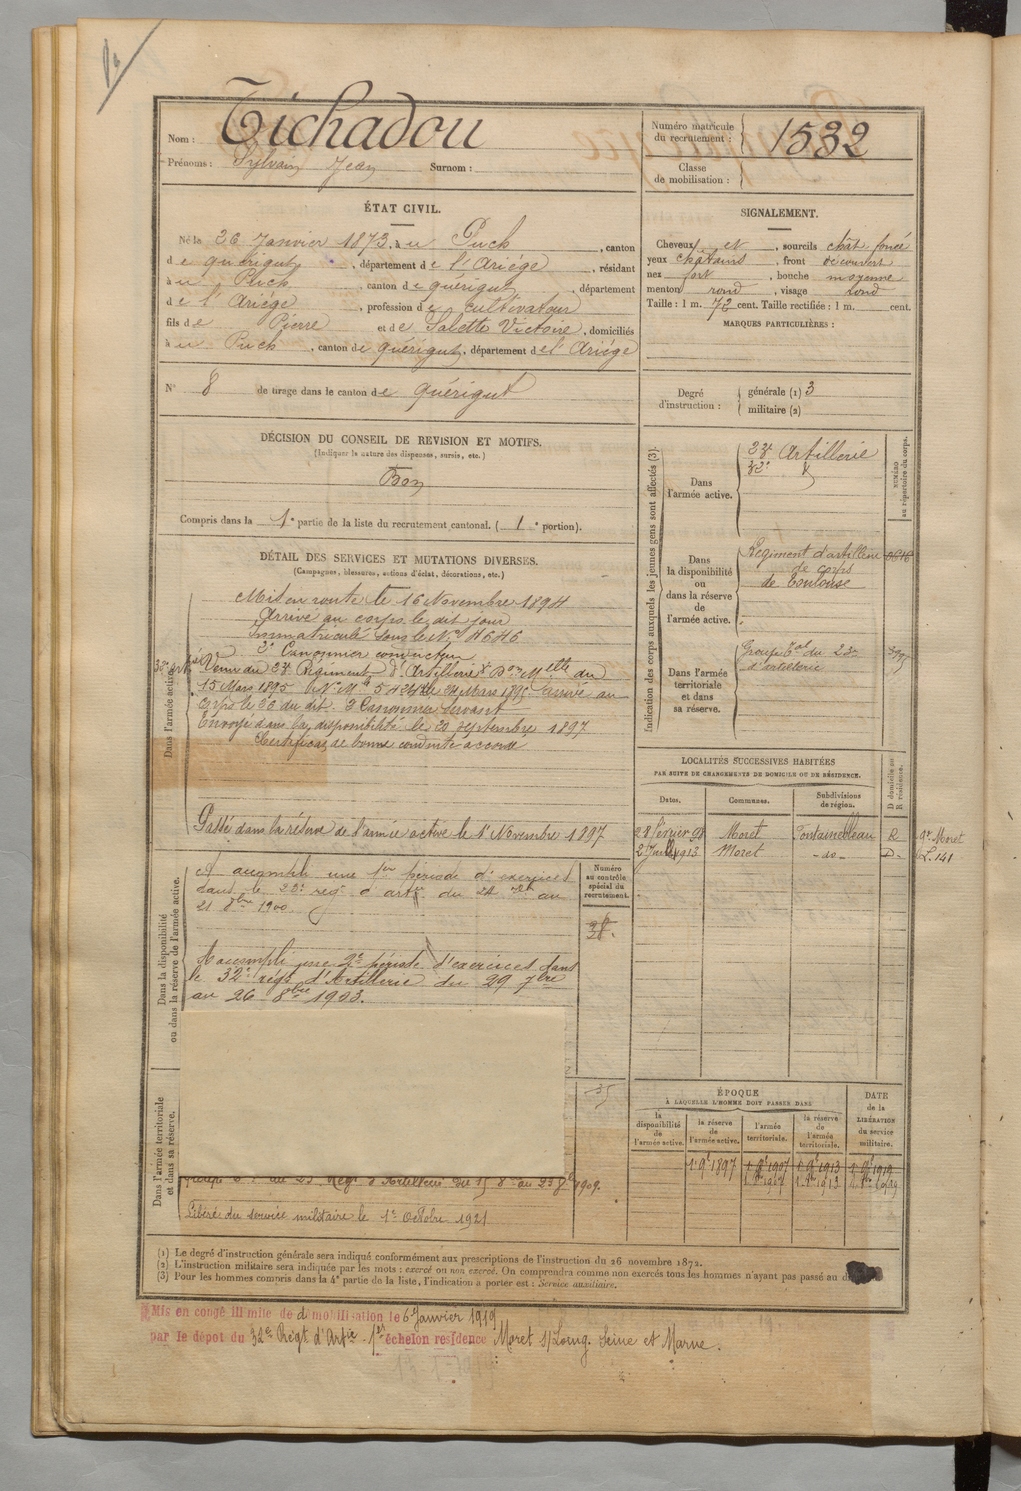 Nom : Tichadou
Prénoms : Sylvain Jean Surnom :
Numéro matricule du recrutement : 1532
Classe de mobilisation :
ÉTAT CIVIL.
Né le 26 Janvier 1873, à u Puch, canton
de quérigut, département de l'Ariége, résidant
à u Puch, canton de quérigut, département
de l'Ariége, profession de cultivateur
fils de Pierre et de Salette Victoire, domiciliés
à u Puch, canton de quérigut, département de l'Ariége
N° 8 de tirage dans le canton de quérigut
SIGNALEMENT.
Cheveux et, sourcils chât. foncé
yeux châtains, front découvert
nez fort, bouche moyenne
menton rond, visage rond
Taille : 1 m. 72 cent. Taille rectifiée : 1 m. cent.
MARQUES PARTICULIÈRES :
Degré d'instruction : générale (1) 3
militaire (2)
DÉCISION DU CONSEIL DE REVISION ET MOTIFS.
(Indiquer la nature des dispenses, sursis, etc.)
Bon
Compris dans la 1e partie de la liste du recrutement cantonal. (1e portion).
DÉTAIL DES SERVICES ET MUTATIONS DIVERSES.
(Campagnes, blessures, actions d'éclat, décorations, etc.)
Dans l'armée active.
Mis en route le 16 Novembre 1894
Arrivé au corps le dit jour
Immatriculé sous le N°
2e Canonnier conducteur
Venu du Régiment d'Artillerie
15 Mars 1895 arrivé au
corps le 26 du dit. 2 Canonnier servant
Envoyé dans la disponibilité le 20 septembre 1897
Certificat de bonne conduite accordé
Passé dans la réserve de l'armée active le 1er Novembre 1897
Dans la disponibilité ou dans la réserve de l'armée active.
A accompli une 1re période d'exercices
dans le 23e rég. d'artie du 24 7bre au
21 8bre 1900.
A accompli une 2e période d'exercices dans
le 32e régt d'Artillerie du 29 7bre
au 26 8bre 1903.
Numéro au contrôle spécial du recrutement.
Dans l'armée territoriale et dans sa réserve.
du 23 Régt d'Artillerie du 15 au 23 1909.
Libéré du service militaire le 1er Octobre 1921
Indication des corps auxquels les jeunes gens sont affectés (3).
NUMÉRO au répertoire du corps.
Dans l'armée active.
23e Artillerie
32e
Dans la disponibilité ou dans la réserve de l'armée active.
Régiment d'artillerie
de corps
de Toulouse
Dans l'armée territoriale et dans sa réserve.
Groupe du 23e
d'artillerie
LOCALITÉS SUCCESSIVES HABITÉES
PAR SUITE DE CHANGEMENTS DE DOMICILE OU DE RÉSIDENCE.
Dates. Communes. Subdivisions de région. D domicile ou R résidence.
28 février 98 Moret Fontainebleau R gie Moret
2 Juillet 1913 Moret - do - D. L. 141
ÉPOQUE
À LAQUELLE L'HOMME DOIT PASSER DANS
la disponibilité de l'armée active.
la réserve de l'armée active.
l'armée territoriale.
la réserve de l'armée territoriale.
DATE de la LIBÉRATION du service militaire.
1er 9bre 1897 1er 9bre 1907 1er 9bre 1913 1er 9bre 1919
(1) Le degré d'instruction générale sera indiqué conformément aux prescriptions de l'instruction du 26 novembre 1872.
(2) L'instruction militaire sera indiquée par les mots : exercé ou non exercé. On comprendra comme non exercés tous les hommes n'ayant pas passé au
(3) Pour les hommes compris dans la 4e partie de la liste, l'indication à porter est : Service auxiliaire.
Mis en congé illimité de démobilisation le 6 Janvier 1919
par le dépôt du 32e Régt d'Artie - 1er échelon résidence Moret s/Loing. Seine et Marne.